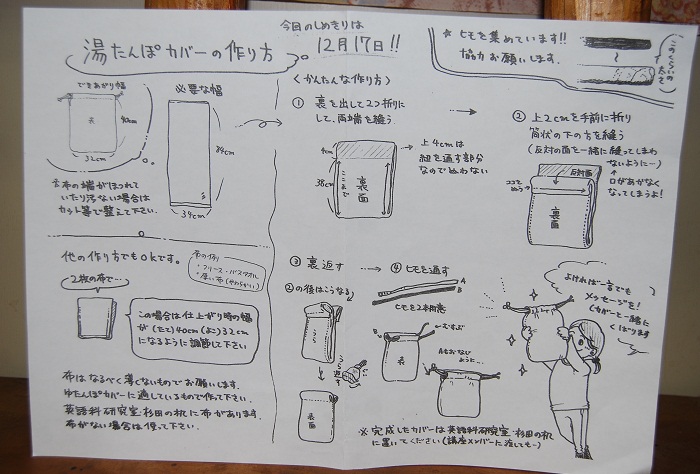 今回のしめきりは
12月17日!!
湯たんぽカバーの作り方
☆ ヒモを集めています!!
協力お願いします。
このくらいの太さ
できあがり幅
表
40cm
32cm
必要な幅
84cm
34cm
☆布の端がほつれて
いたり汚ない場合は
カット等で整えて下さい。
他の作り方でもokです。
布の例
・フリース・バスタオル
・厚い布(やわらかい)
2枚の布で…
この場合は仕上がり時の幅
が(たて)40cm(よこ)32cm
になるように調節して下さい
布はなるべく薄くないものでお願いします。
ゆたんぽカバーに適しているもので作って下さい。
英語科研究室杉田の机に布があります。
布がない場合は使って下さい。
〈かんたんな作り方〉
① 裏を出して2つ折り
にして、両端を縫う
4cm
38cm
ここまで
裏面
上4cmは
紐を通す部分
なのでぬわない
② 上2cmを手前に折り
筒状の下の方を縫う
(反対の面を一緒に縫ってしまわ
ないようにー)
↑
口があかなく
なってしまうよ!
反対面
ココを
ぬう
裏面
③ 裏返す
②の後はこうなる
うら
うら返す
表面
④ ヒモを通す
A
B
ヒモを2本用意
むすぶ
B
表
Aもおなじ
ように…
よければ一言でも
メッセージを!
カバーと一緒に
くばります
※ 完成したカバーは英語科研究室 杉田の机
に置いてください(講座メンバーに渡してもー)